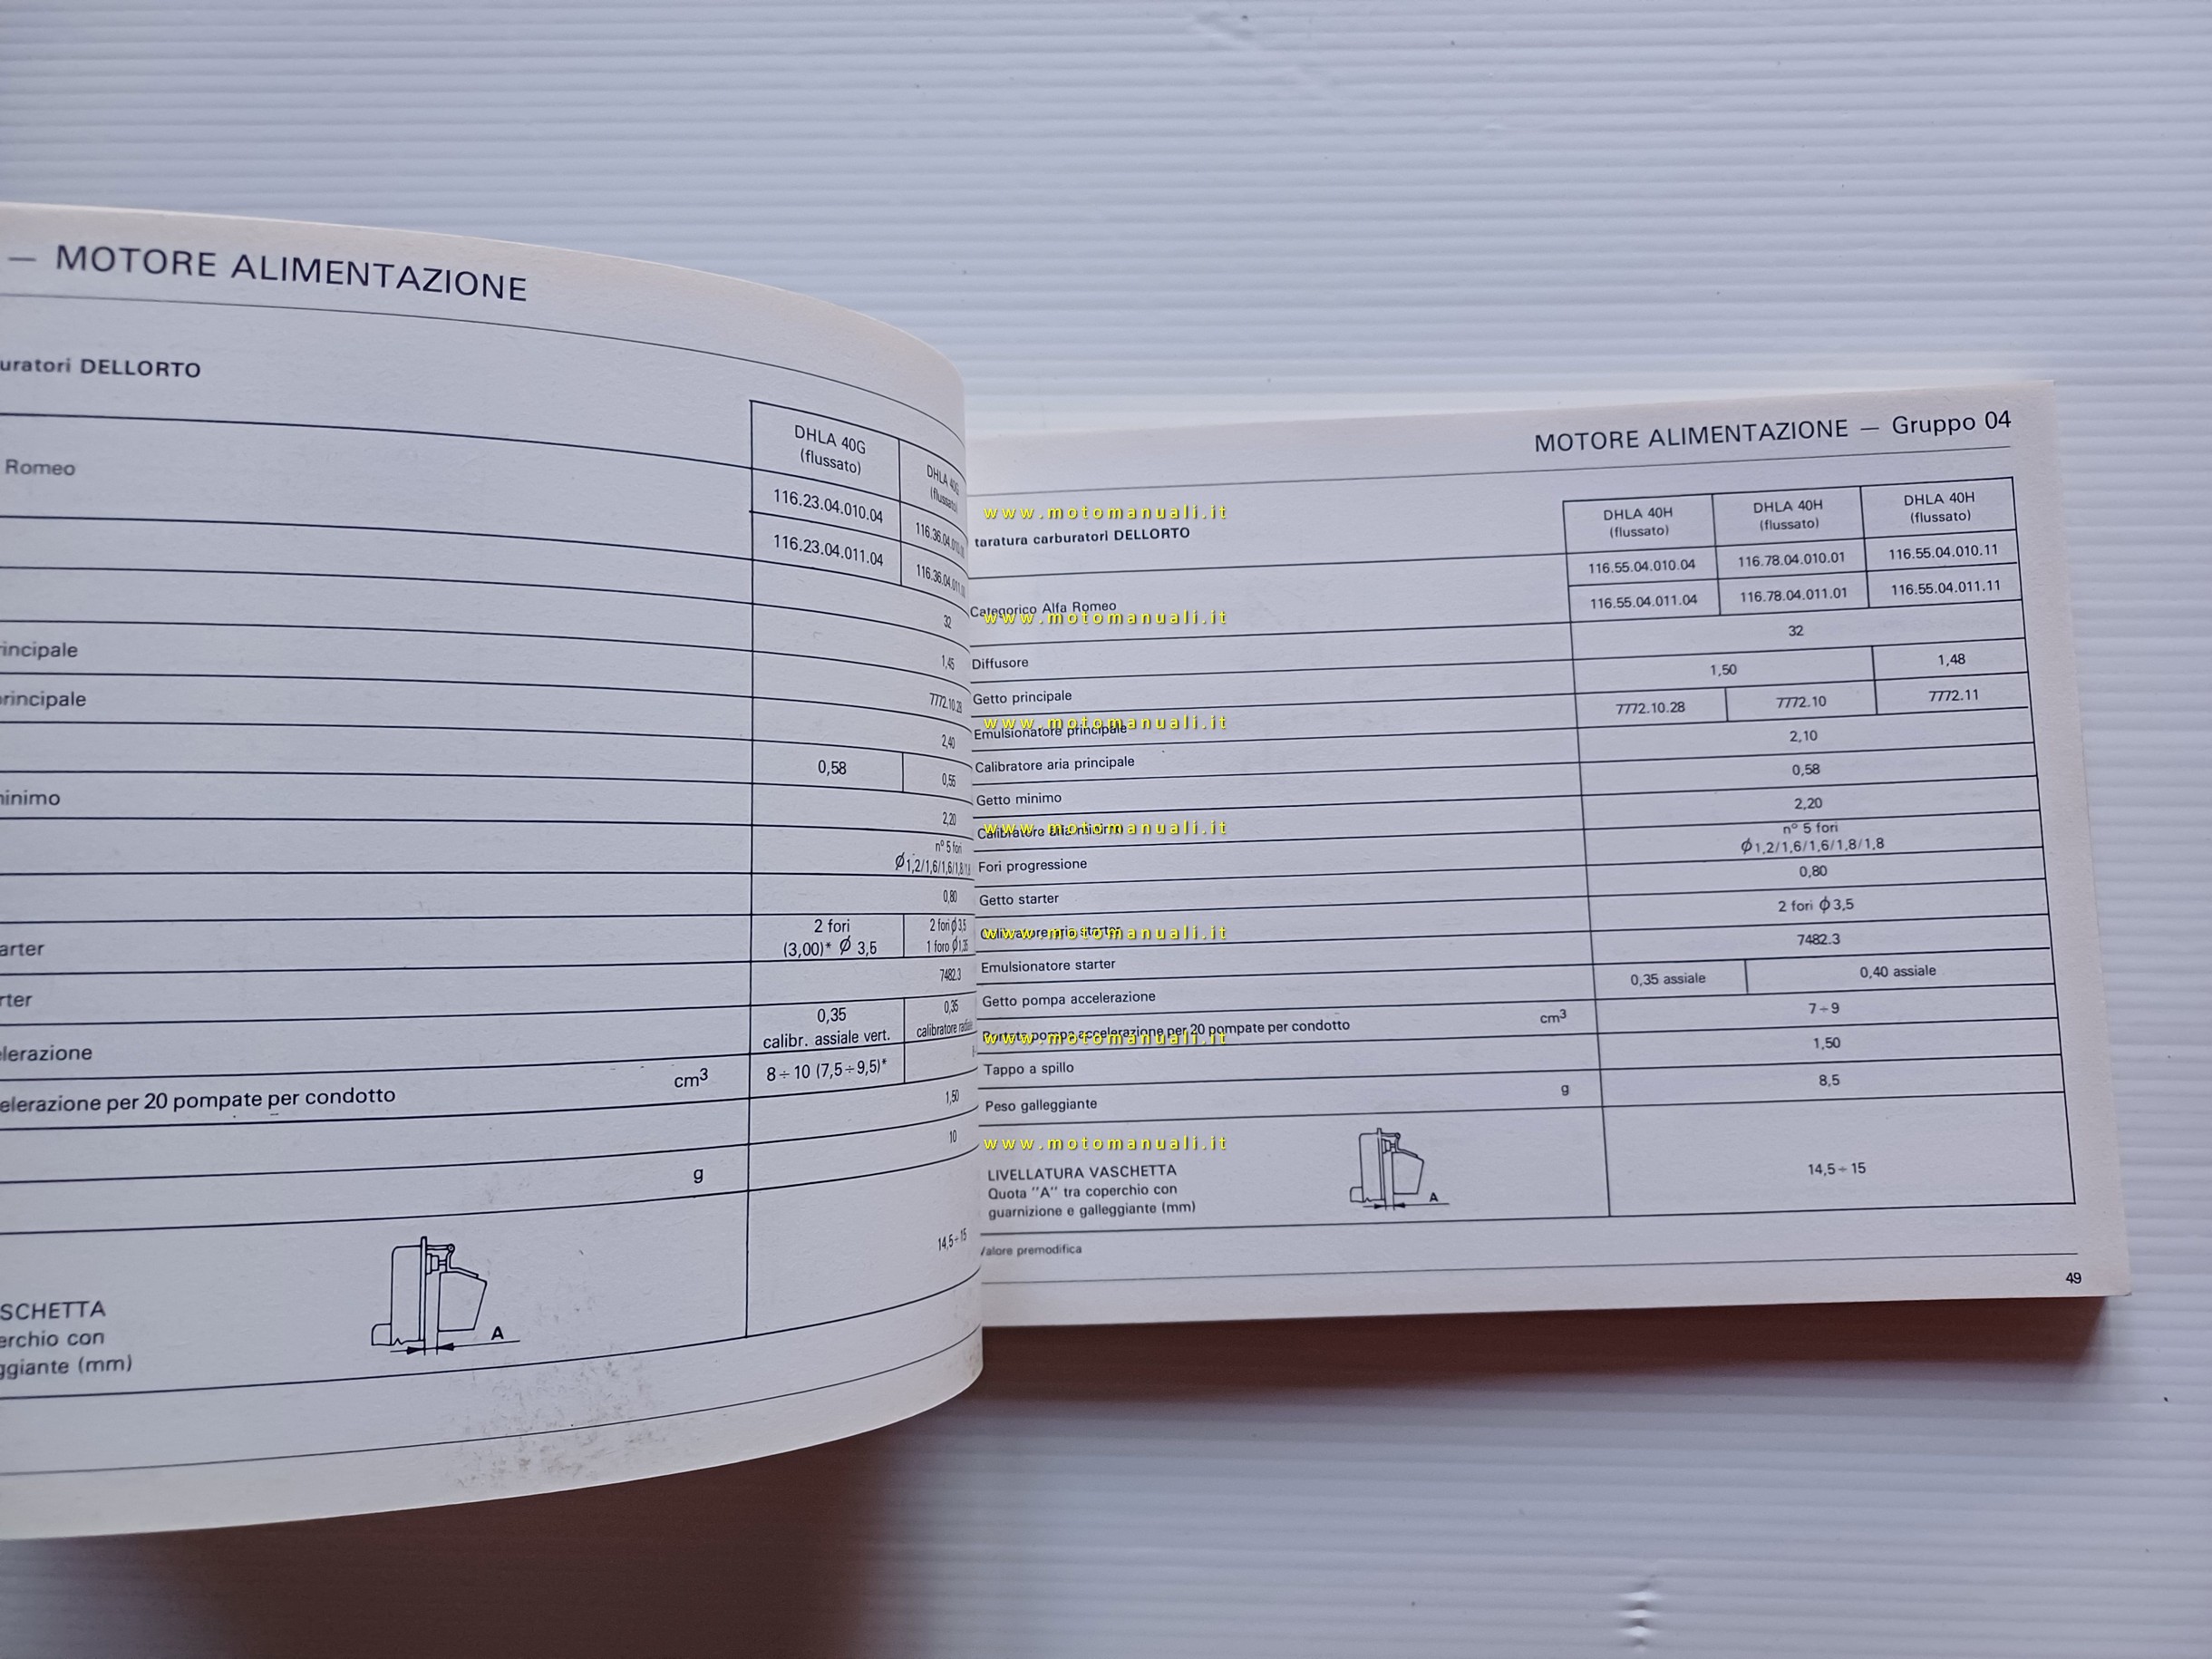 — MOTORE ALIMENTAZIONE
uratori DELLORTO
DHLA 40G
(flussato)
DHLA 40G
(flussato)
Romeo
116.23.04.010.04
116.23.04.011.04
32
rincipale
1,45
principale
7772.10.28
2,40
0,58
0,55
minimo
2,20
n° 5 fori
Ø 1,2/1,6/1,6/1,8/1,8
0,80
arter
2 fori
(3,00)* Ø 3,5
2 fori Ø 3,5
1 foro
rter
7482.3
elerazione
0,35
calibr. assiale vert.
0,35
calibratore
elerazione per 20 pompate per condotto cm³ 8÷10 (7,5÷9,5)*
1,50
g 10
SCHETTA
erchio con
ggiante (mm)
A
14,5÷15
MOTORE ALIMENTAZIONE — Gruppo 04
www.motomanuali.it
taratura carburatori DELLORTO
DHLA 40H
(flussato)
DHLA 40H
(flussato)
DHLA 40H
(flussato)
Categorico Alfa Romeo
www.motomanuali.it
116.55.04.010.04 116.78.04.010.01 116.55.04.010.11
116.55.04.011.04 116.78.04.011.01 116.55.04.011.11
Diffusore 32
Getto principale 1,50 1,48
www.motomanuali.it
Emulsionatore principale 7772.10.28 7772.10 7772.11
Calibratore aria principale 2,10
Getto minimo 0,58
Calibratore aria minimo 2,20
www.motomanuali.it
Fori progressione n° 5 fori
Ø 1,2/1,6/1,6/1,8/1,8
Getto starter 0,80
Calibratore aria starter 2 fori Ø 3,5
www.motomanuali.it
Emulsionatore starter 7482.3
Getto pompa accelerazione 0,35 assiale 0,40 assiale
Portata pompa accelerazione per 20 pompate per condotto cm³ 7÷9
www.motomanuali.it
Tappo a spillo 1,50
Peso galleggiante g 8,5
www.motomanuali.it
LIVELLATURA VASCHETTA
Quota "A" tra coperchio con
guarnizione e galleggiante (mm)
A
14,5÷15
Valore premodifica
49